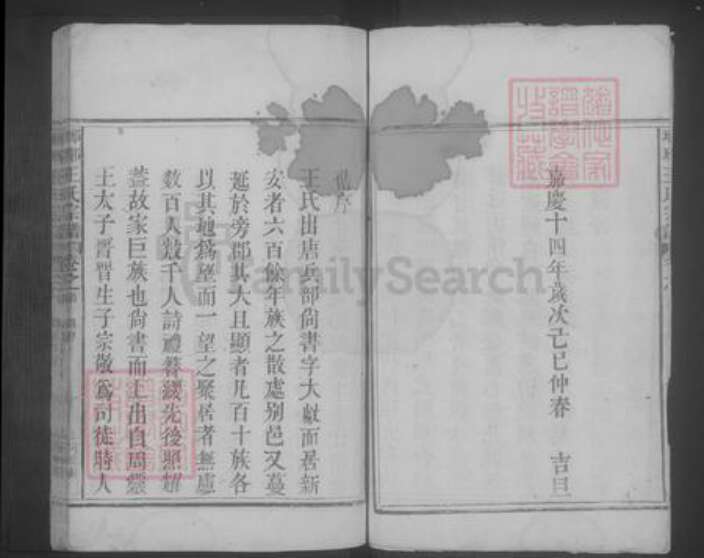 嘉慶十四年歲次己巳仲春 吉旦
序
王氏出唐兵部尙書字大獻而居新
安者六百餘年族之散處别邑又蔓
延於旁郡其大且顯者凡百十族各
以其地爲歷而一望之聚居者無慮
數百人數千人詩禮簪纓先後照耀
蓋故家巨族也尙書而上出自周靈
王太子晋晋生子宗敬爲司徒時人
FamilySearch